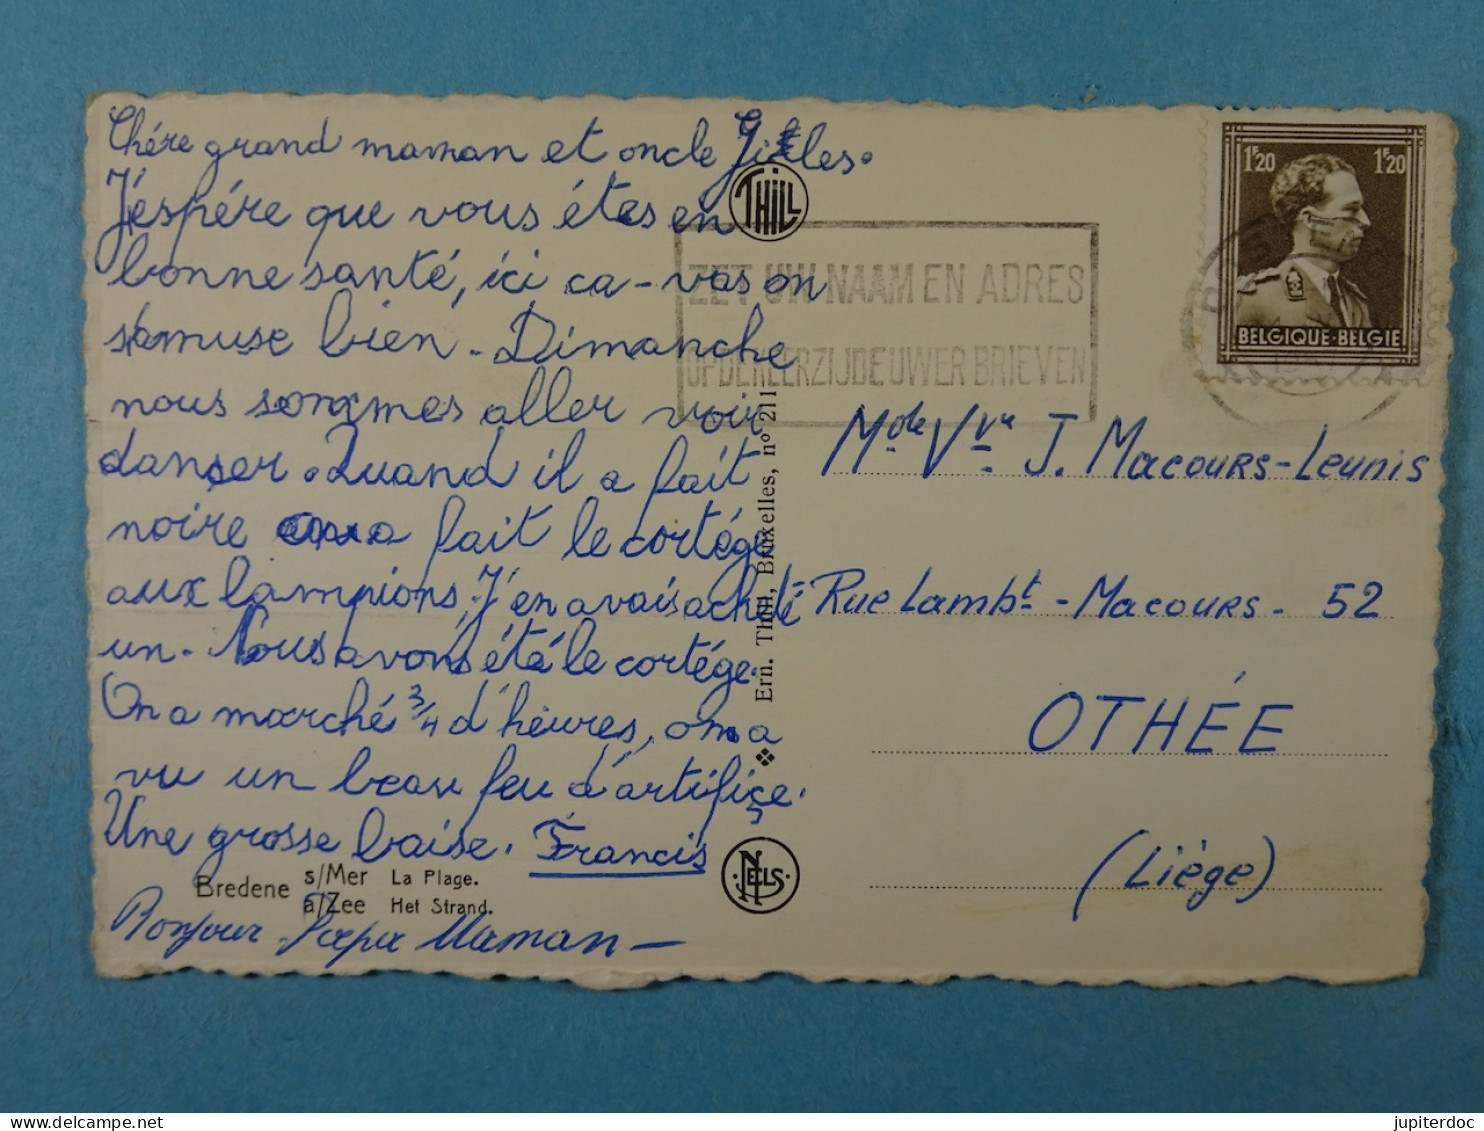 Chére grand maman et oncle Gilles.
J'éspére que vous étes en
bonne santé, ici ca-vas on
s'amuse bien. Dimanche
nous sommes aller voir
danser. Quand il a fait
noire on a fait le cortége
aux lampions, J'en avais acheté
un. Nous avons été le cortége.
On a marché 3/4 d'heures, on a
vu un beau feu d'artifiçe.
Une grosse baise. Francis
Bredene s/Mer La Plage.
a/Zee Het Strand.
Bonjour Papa Maman —
THILL
Ern. Thill, Bruxelles, n° 211
NELS
ZET UW NAAM EN ADRES
OP DE KEERZIJDE UWER BRIEVEN
1F20 1F20
BELGIQUE·BELGIE
Mde Vve J. Macours-Leunis
Rue Lambt - Macours - 52
OTHÉE
(Liège)
jupiterdoc
delcampe.net